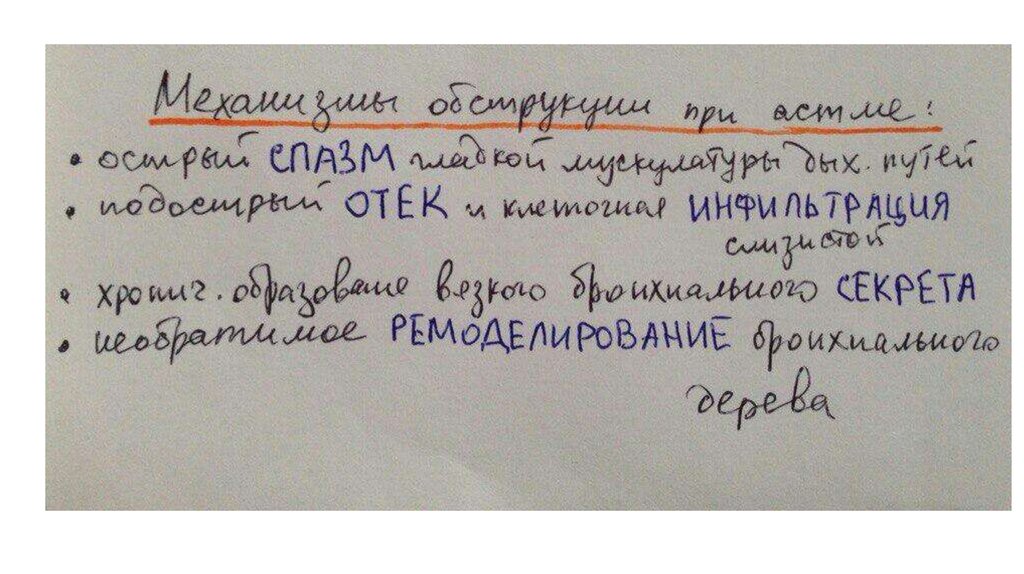 Механизмы обструкции при астме:
• острый СПАЗМ гладкой мускулатуры дых. путей
• подострый ОТЕК и клеточная ИНФИЛЬТРАЦИЯ
слизистой
• хронич. образование вязкого бронхиального СЕКРЕТА
• необратимое РЕМОДЕЛИРОВАНИЕ бронхиального
дерева